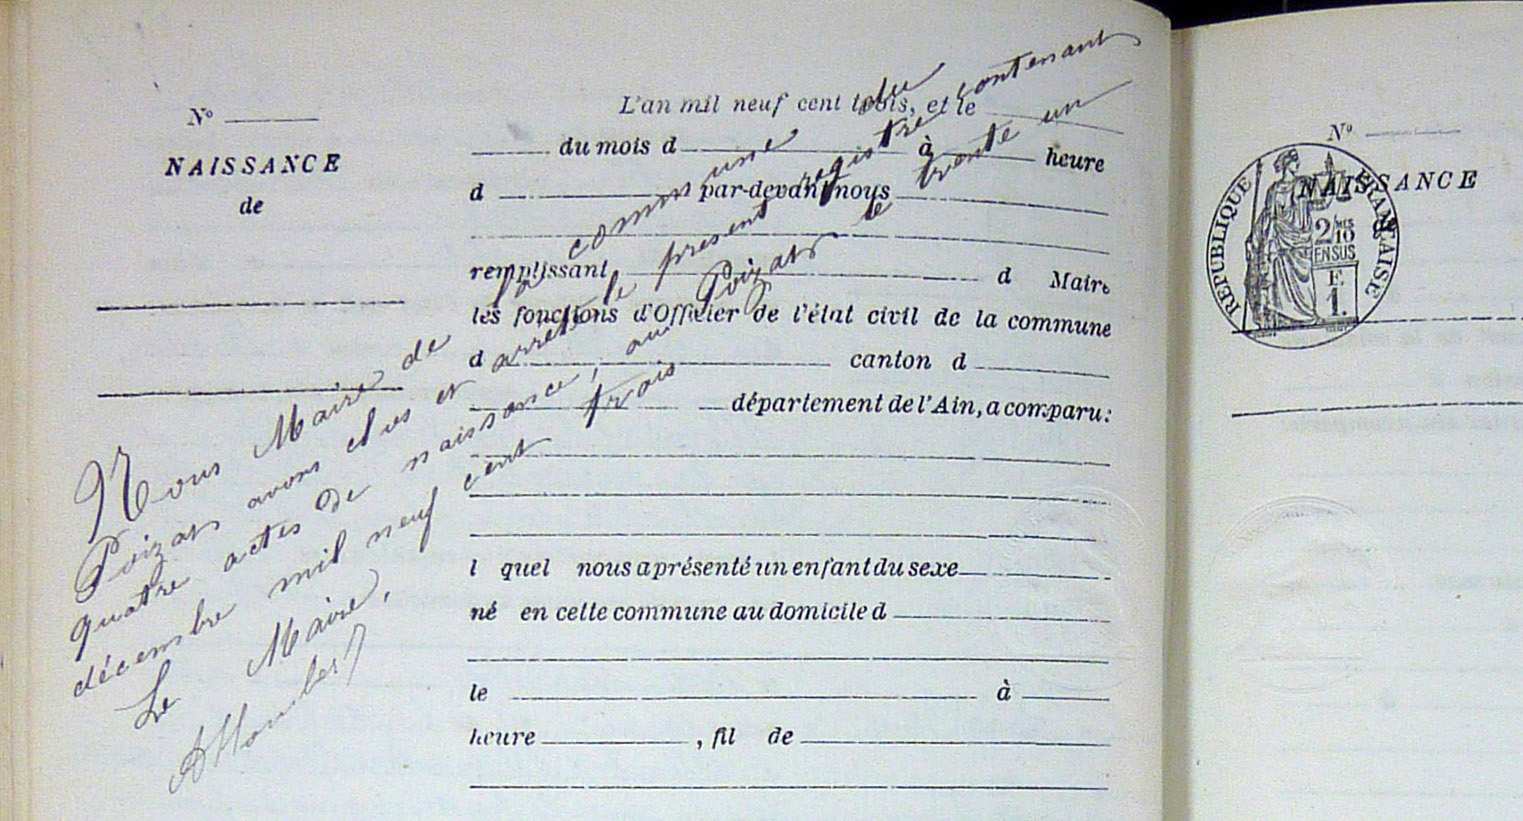 N°
NAISSANCE
de
L'an mil neuf cent trois, et le
du mois d à heure
d par-devant nous
remplissant d Maire
les fonctions d'Officier de l'état civil de la commune
d canton d
département de l'Ain, a comparu:
l quel nous a présenté un enfant du sexe
né en cette commune au domicile d
le à
heure , fil de
Nous Maire de la commune du
Poizat avons clos et arrêté le présent registre contenant
quatre actes de naissance, au Poizat le trente un
décembre mil neuf cent trois
Le Maire,
N°
NAISSANCE
RÉPUBLIQUE FRANÇAISE
2/10
EN SUS
F.
1.